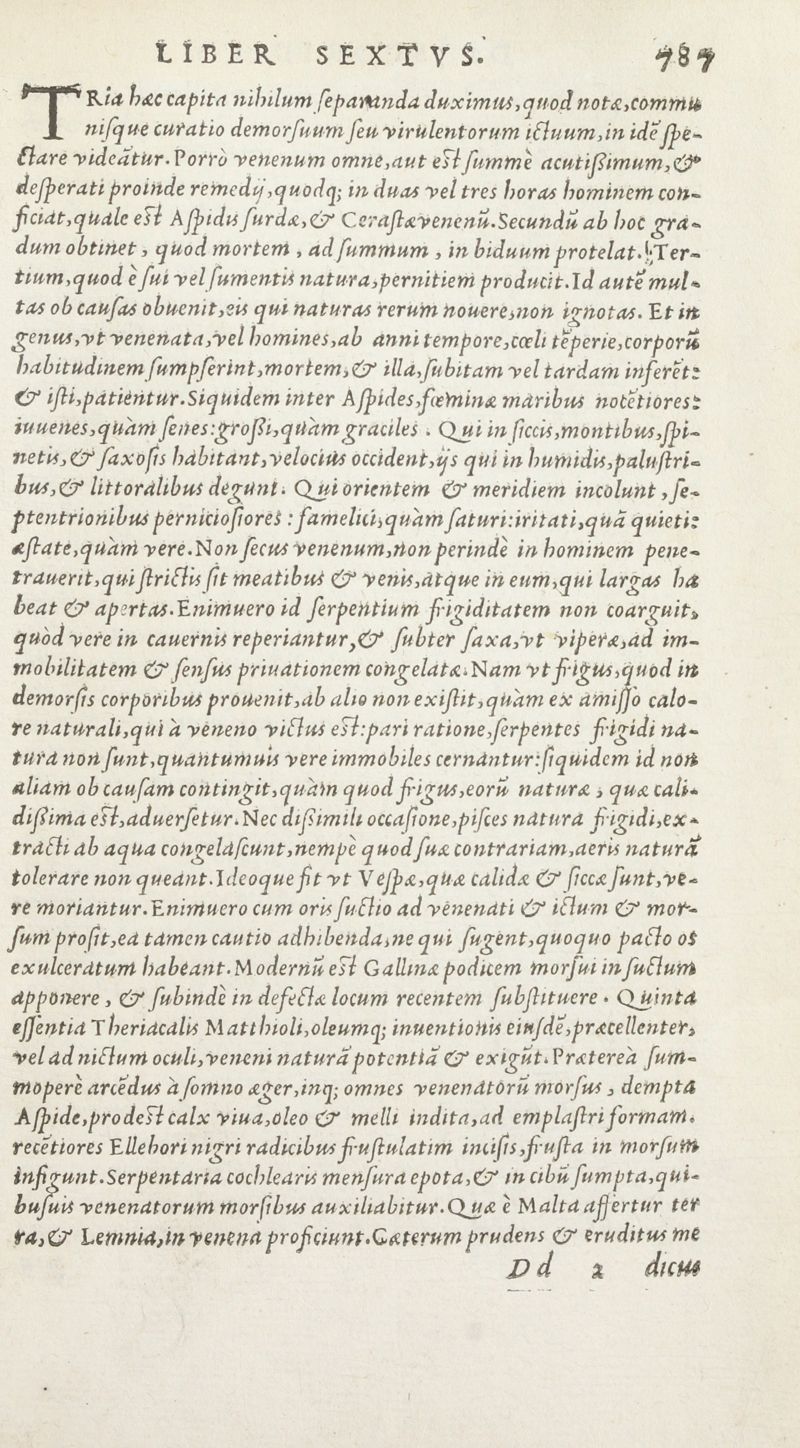 LIBER SEXTVS. 787
TRia hæc capita nihilum separanda duximus, quod notæ, commu
nisque curatio demorsuum seu virulentorum ictuum, in idẽ spe-
ctare videãtur. Porrò venenum omne, aut est summè acutißimum, &
desperati proinde remedij, quodq; in duas vel tres horas hominem con-
ficiat, quale est Aspidis surdæ, & Cerastæ venenũ. Secundũ ab hoc gra-
dum obtinet, quod mortem, ad summum, in biduum protelat. Ter-
tium, quod è sui vel sumentis natura, pernitiem producit. Id autẽ mul-
tas ob causas obuenit, eis qui naturas rerum nouere, non ignotas. Et in
genus, vt venenata, vel homines, ab anni tempore, cœli tẽperie, corporũ
habitudinem sumpserint, mortem, & illa, subitam vel tardam inferẽt:
& isti, patientur. Siquidem inter Aspides, fœminæ maribus nocẽtiores:
iuuenes, quàm senes: großi, quàm graciles. Qui in siccis, montibus, spi-
netis, & saxosis habitant, velocius occident, ijs qui in humidis, palustri-
bus, & littoralibus degunt. Qui orientem & meridiem incolunt, se-
ptentrionibus perniciosiores: famelici, quàm saturi: iritati, quã quieti:
æstate, quàm vere. Non secus venenum, non perindè in hominem pene-
trauerit, qui strictis sit meatibus & venis, atque in eum, qui largas ha
beat & apertas. Enimuero id serpentium frigiditatem non coarguit,
quòd vere in cauernis reperiantur, & subter saxa, vt viperæ, ad im-
mobilitatem & sensus priuationem congelatæ. Nam vt frigus, quod in
demorsis corporibus prouenit, ab alio non existit, quàm ex amisso calo-
re naturali, qui à veneno victus est: pari ratione, serpentes frigidi na-
tura non sunt, quantumuis vere immobiles cernantur: siquidem id non
aliam ob causam contingit, quàm quod frigus, eorũ naturæ, quæ cali-
dißima est, aduersetur. Nec dißimili occasione, pisces natura frigidi, ex-
tracti ab aqua congelascunt, nempè quod suæ contrariam, aeris naturã
tolerare non queant. Ideoque fit vt Vespæ, quæ calidæ & siccæ sunt, ve-
re moriantur. Enimuero cum oris suctio ad venenati & ictum & mor-
sum prosit, ea tamen cautio adhibenda, ne qui sugent, quoquo pacto os
exulceratum habeant. Modernũ est Gallinæ podicem morsui insuctum
apponere, & subindè in defectæ locum recentem substituere. Quinta
essentia Theriacalis Matthioli, oleumq; inuentionis eiusdẽ, præcellenter,
vel ad nictum oculi, veneni naturã potentiã & exigũt. Prætereà sum-
moperè arcẽdus à somno æger, inq; omnes venenatorũ morsus, dempta
Aspide, prodest calx viua, oleo & melli indita, ad emplastri formam.
recẽtiores Ellebori nigri radicibus frustulatim incisis, frusta in morsum
infigunt. Serpentaria cochlearis mensura epota, & in cibũ sumpta, qui-
busuis venenatorum morsibus auxiliabitur. Quæ è Malta affertur ter
ra, & Lemnia, in venena proficiunt. Cæterum prudens & eruditus me
Dd 2 dicus